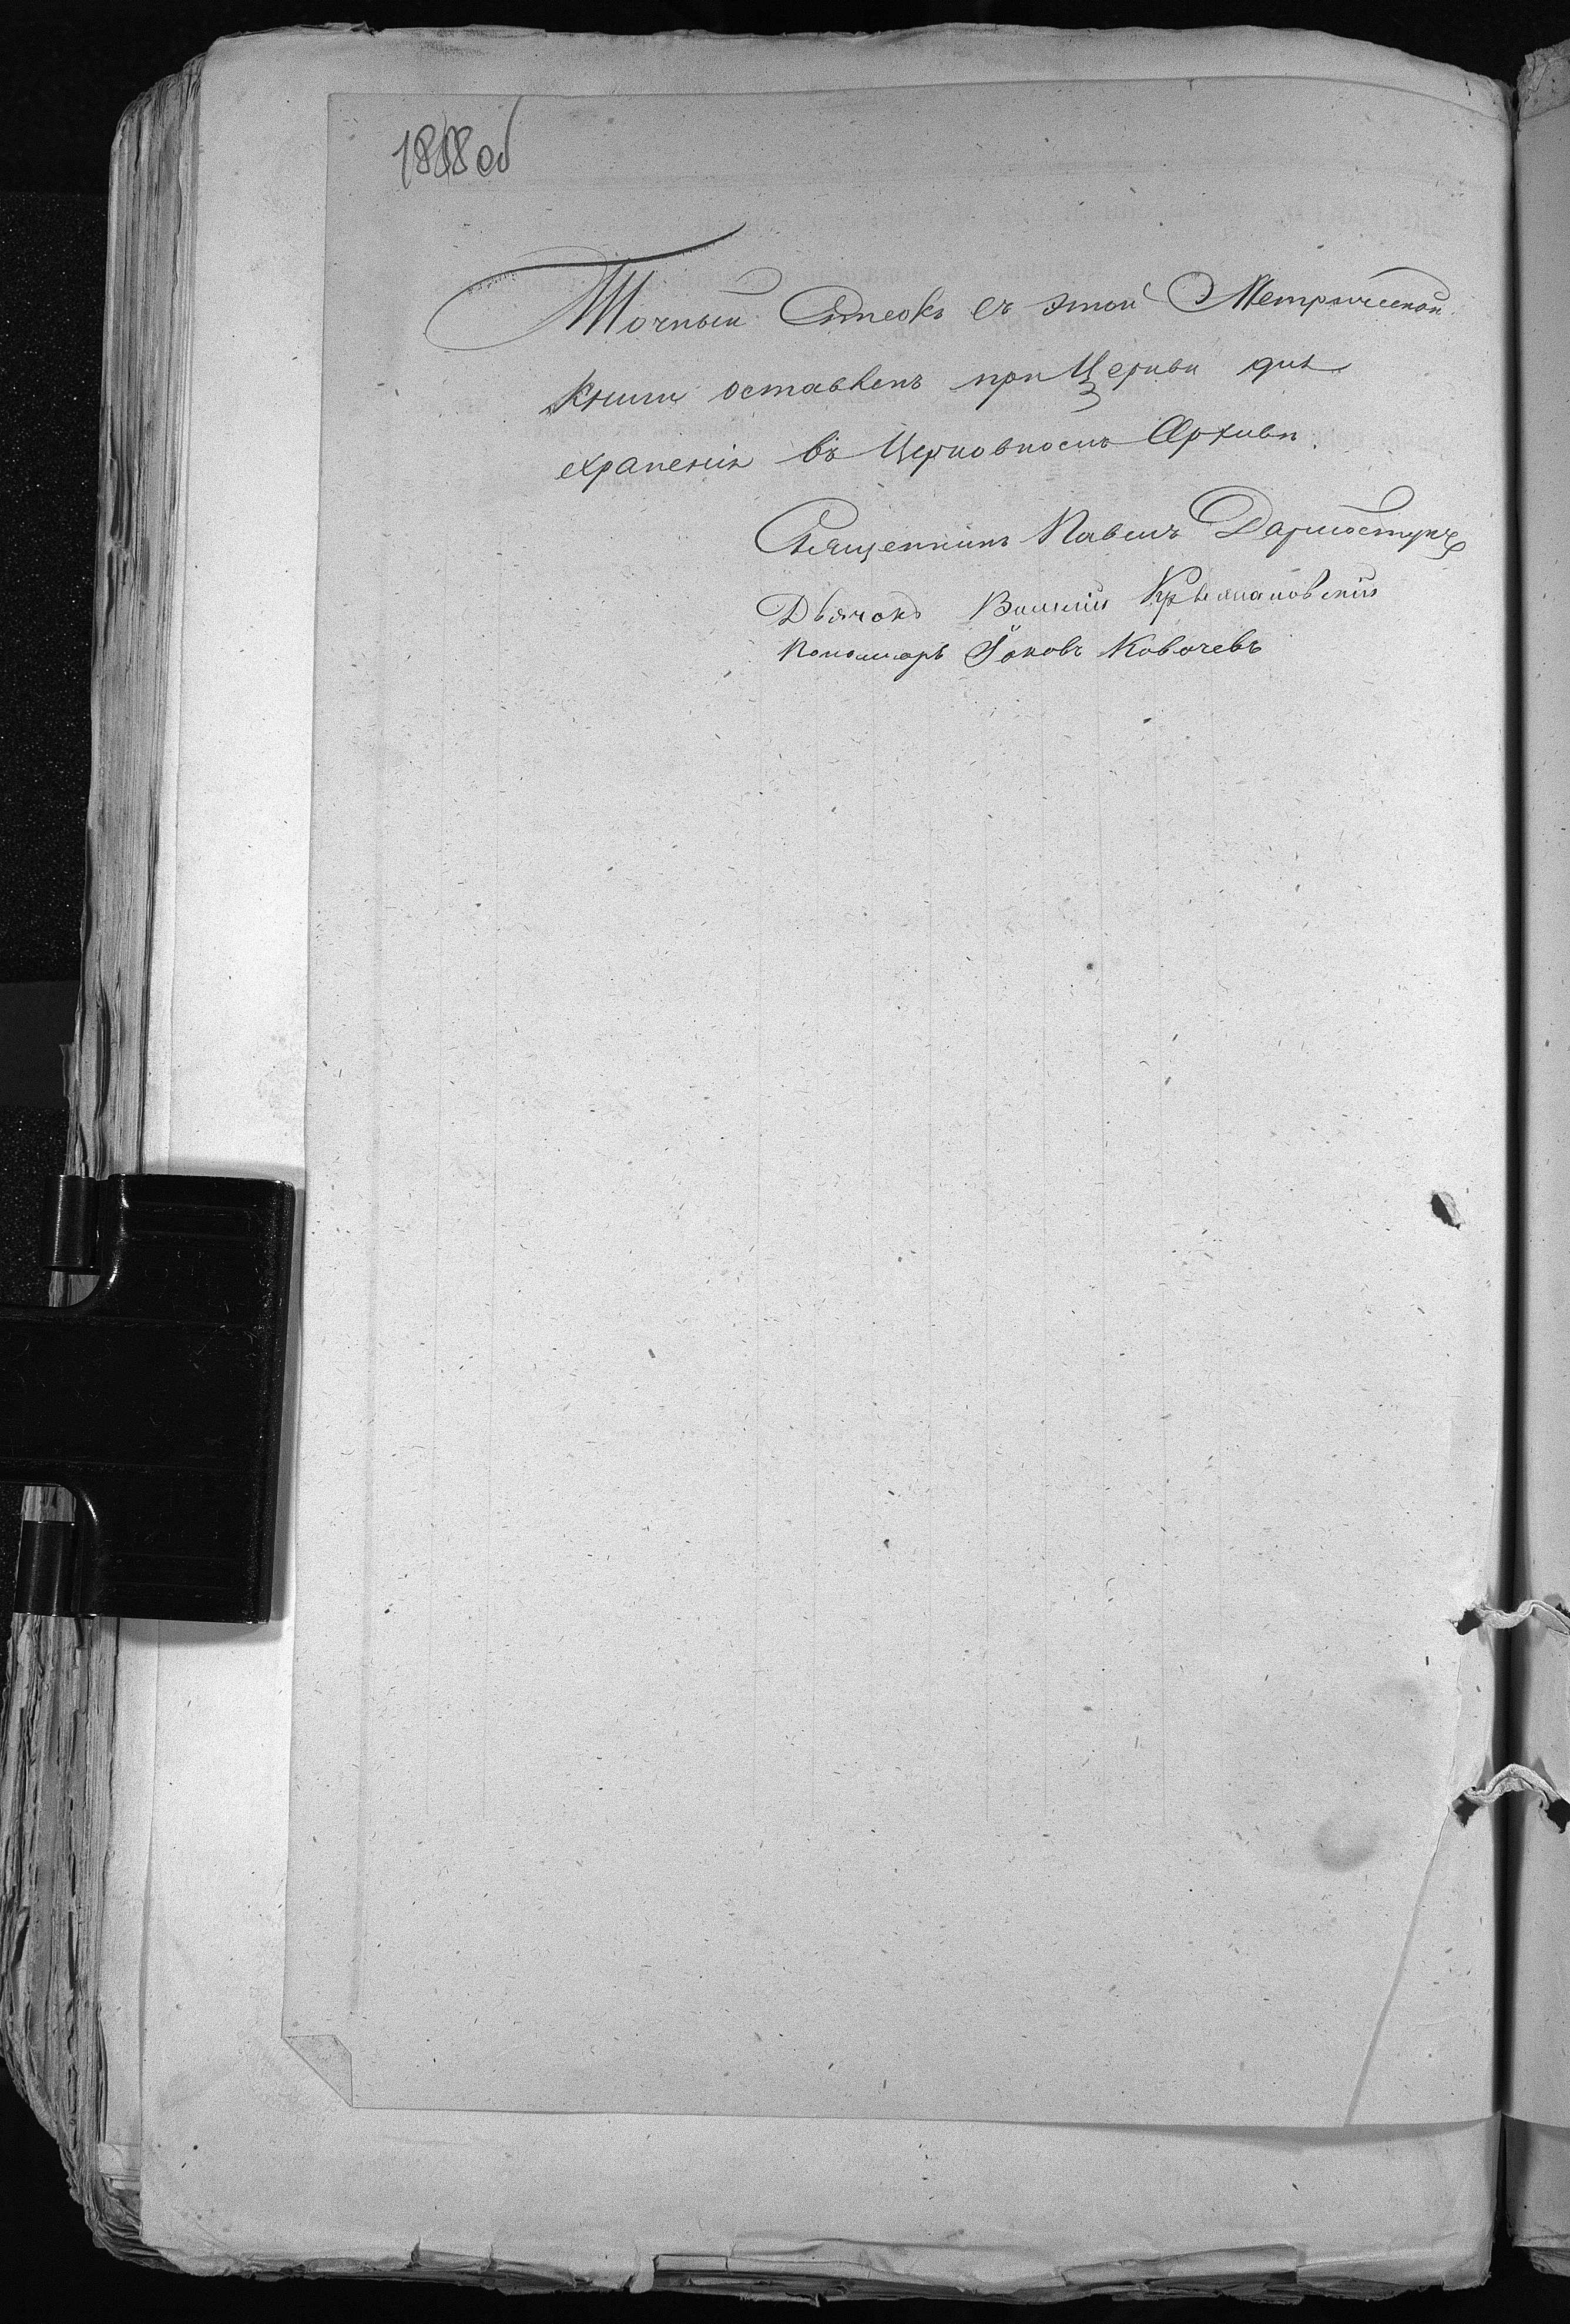 188об
Точный Списокъ съ этой Метрической
Книги оставленъ при Церкви для
храненія въ Церковномъ Архивѣ.
Священникъ Павелъ Дармостукъ
Дьячокъ Василій Крыжановскій
Пономарь Іаковъ Ковачевъ